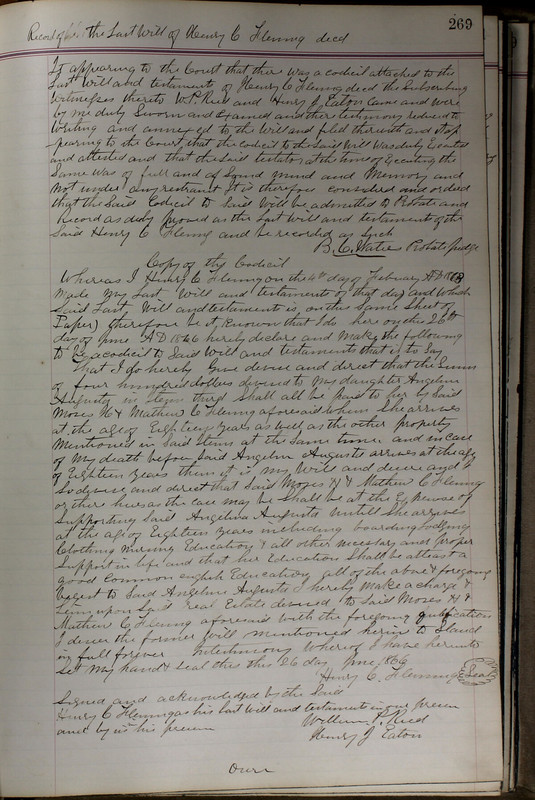 269
Record of the Last Will of Henry C Fleming decd
It appearing to the Court that there was a codicil attached to the
Last Will and testament of Henry C Fleming decd the Subscribing
Witnesses thereto W. P. Reed and Henry J. Eaton Came and were
by me duly Sworn and Examined and their testimony reduced to
Writing and annexed to the Will and filed therewith and it ap
pearing to the Court that the Codicil to the Said Will was duly Executed
and attested and that the Said testator at the time of Executing the
Same was of full age of Sound mind and Memory and
Not under any restraint It is therefore considered and ordered
that the Said Codicil to Said Will be admitted to Probate and
Record as duly proved as the Last Will and testament of the
Said Henry C Fleming and be recorded as Such
B. C. Probate Judge
Copy of the Codicil
Whereas I Henry C Fleming on the 4th day of February AD
Made My Last Will and testament of that day and Which
Said Last Will and testament is on the Same Sheet of
Paper) therefore be it Known that I do here on the 26th
day of June AD 1866 hereby declare and Make the following
to be a codicil to Said Will and testament that is to Say
That I do hereby Give devise and direct that the Sum
of four hundred dollars devised to My daughter Angelina
Augusta in Item third Shall all be paid to her by Said
Moses H & Mathew C Fleming aforesaid when She arrives
at the age of Eighteen years as well as the other property
Mentioned in Said Item at the Same time and in Case
of My death before Said Angelina Augusta arrives at the age
of Eighteen years then it is my Will and desire and I
So devise and direct that Said Moses H & Mathew C Fleming
or their heirs as the case may be Shall be at the Expense of
Supporting Said Angelina Augusta Untill She arrives
at the age of Eighteen years including boarding lodging
Clothing Nursing Education & all other necessary and proper
Support in life and that her Education Shall be at least a
good Common english Education all of the above & foregoing
beqest to Said Angelina Augusta I hereby make a charge &
Lein upon Said real Estate devised to Said Moses H &
Mathew C Fleming aforesaid with the foregoing qualification
I desire the former Will mentioned herein to Stand
in full forever In testimony Whereof I have hereunto
Set My hand & Seal this the 26 day June 1866
Henry C Fleming Seal
Signed and acknowledged by the Said
Henry C Fleming as his last Will and testament in our presen
and by us in his presen
William P. Reed
Henry J Eaton
Over